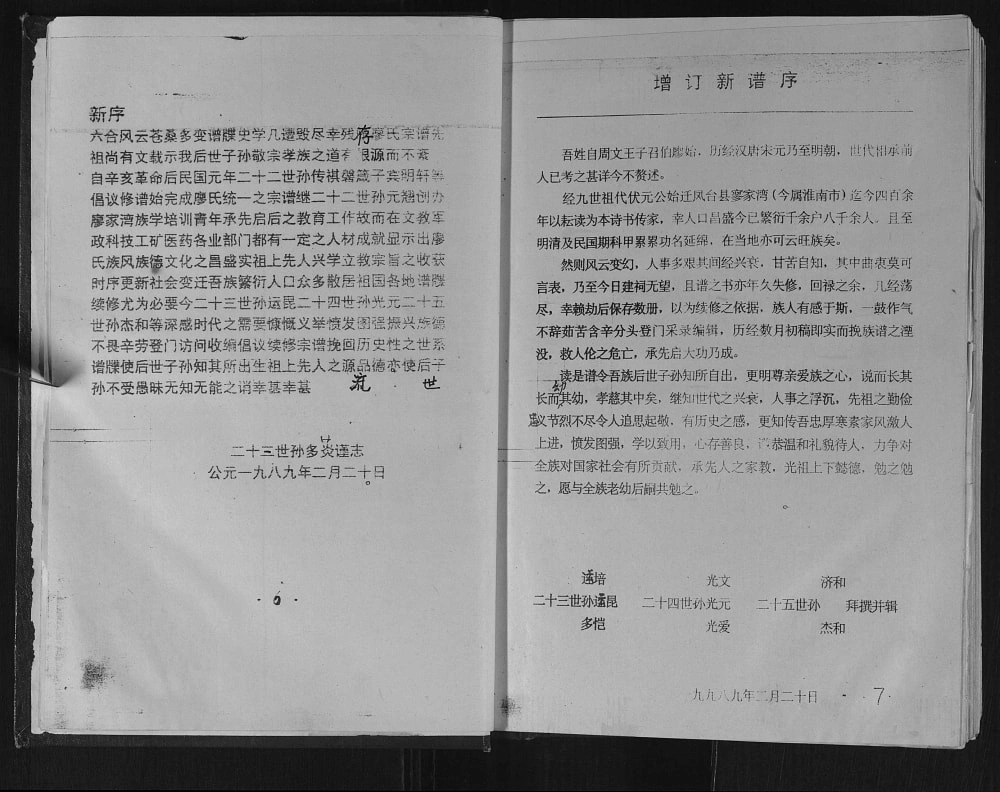 新序
六合风云苍桑多变谱牒史学几遭毁尽幸残存廖氏宗谱先
祖尚有文载示我后世子孙敬宗孝族之道有根源而不紊
自辛亥革命后民国元年二十二世孙传祺磐箴子宾明轩等
倡议修谱始完成廖氏统一之宗谱继二十二世孙元翘创办
廖家湾族学培训青年承先启后之教育工作故而在文教军
政科技工矿医药各业部门都有一定之人材成就显示出廖
氏族风族德文化之昌盛实祖上先人兴学立教宗旨之收获
时序更新社会变迁吾族繁衍人口众多散居祖国各地谱牒
续修尤为必要今二十三世孙运昆二十四世孙光元二十五
世孙杰和等深感时代之需要慷慨义举愤发图强振兴族德
不畏辛劳登门访问收编倡议续修宗谱挽回历史性之世系
谱牒使后世子孙知其所出生祖上先人之源品德亦使后子
孙不受愚昧无知无能之诮幸甚幸甚 流 世
二十三世孙多炎谨志
公元一九八九年二月二十日
增订新谱序
吾姓自周文王子召伯廖始，历经汉唐宋元乃至明朝，世代祖承前
人已考之甚详今不赘述。
经九世祖代伏元公始迁凤台县寥家湾（今属淮南市）迄今四百余
年以耘读为本诗书传家，幸人口昌盛今已繁衍千余户八千余人。且至
明清及民国期科甲累累功名延绵，在当地亦可云旺族矣。
然则风云变幻，人事多艰其间经兴衰，甘苦自知，其中曲衷莫可
言表，乃至今日建祠无望，且谱之书亦年久失修，回禄之余，几经荡
尽，幸赖劫后保存数册，以为续修之依据，族人有感于斯，一鼓作气
不辞茹苦含辛分头登门采录编辑，历经数月初稿即实而挽族谱之湮
没，救人伦之危亡，承先启大功乃成。
读是谱令吾族后世子孙知所自出，更明尊亲爱族之心，说而长其
长而幼其幼，孝慈其中矣，继知世代之兴衰，人事之浮沉，先祖之勤俭
义节烈不尽令人追思起敬，有历史之感，更知传吾忠厚寒素家风激人
上进，愤发图强，学以致用，心存善良，恭温和礼貌待人，力争对
全族对国家社会有所贡献，承先人之家教，光祖上下懿德，勉之勉
之，愿与全族老幼后嗣共勉之。
运培 光文 济和
二十三世孙运昆 二十四世孙光元 二十五世孙 拜撰并辑
多恺 光爱 杰和
九八九年二月二十日 · 7·